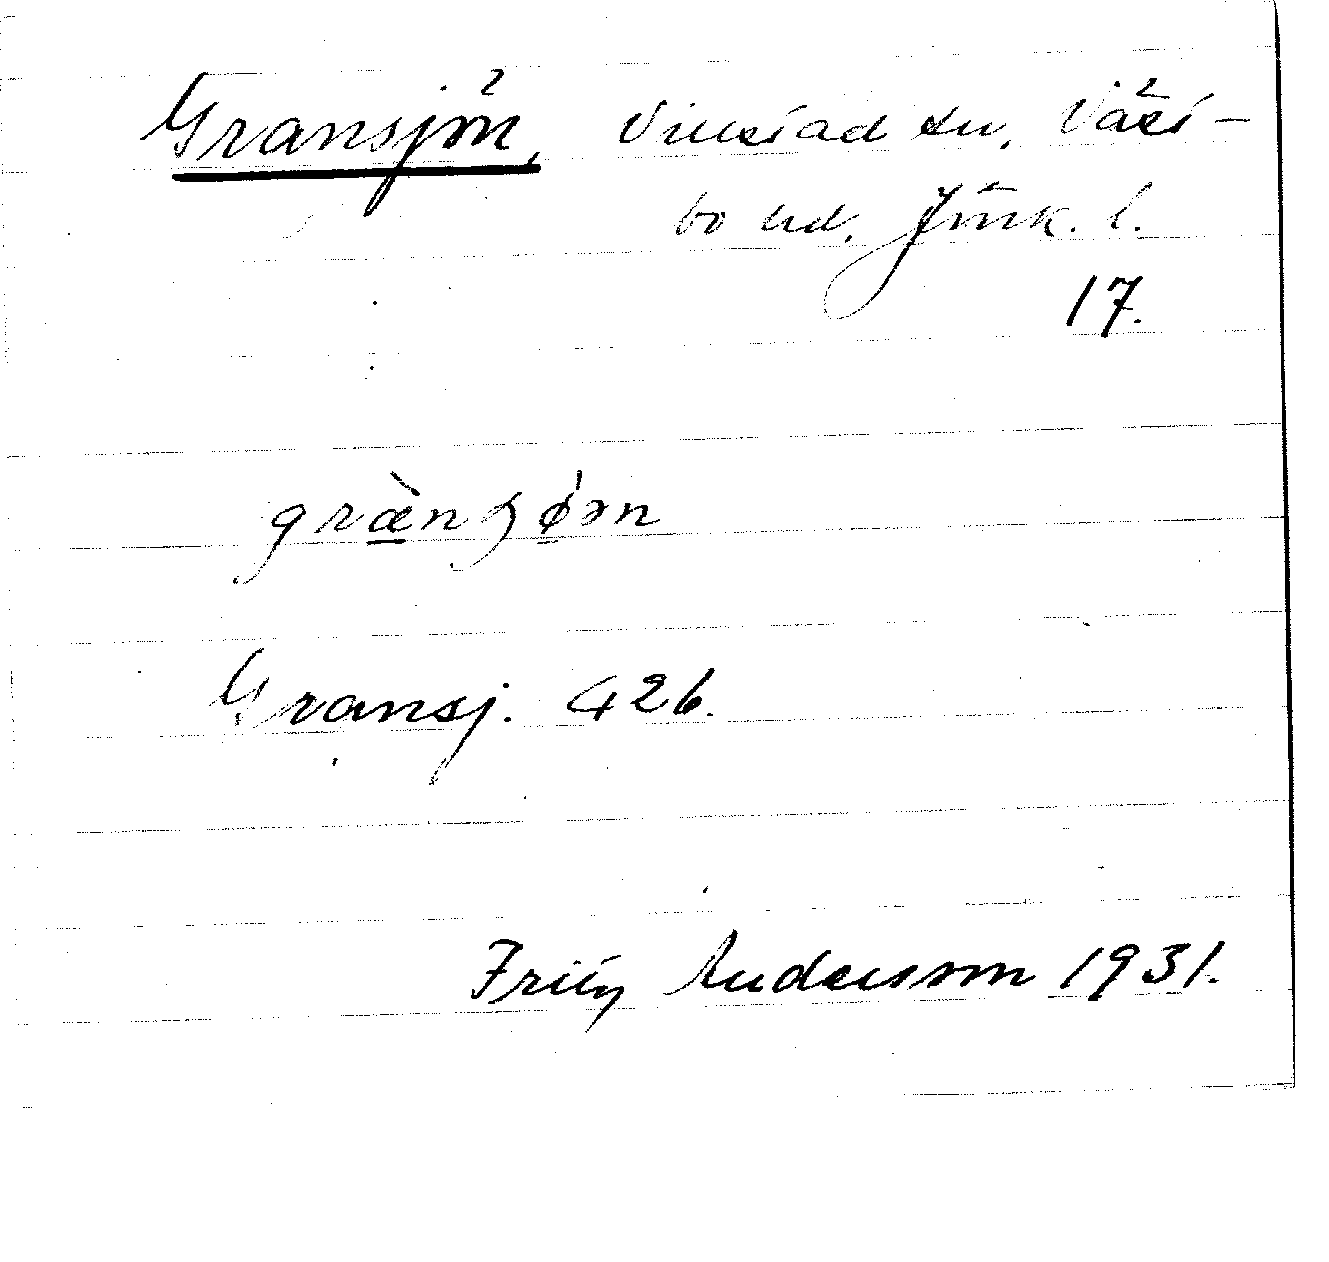 Gransjön, Villstad sn, Väst-
bo hd. Jönk. l.
17.
græ̀nʂǿən
Gransj. 426.
Fritz Andersson 1931.